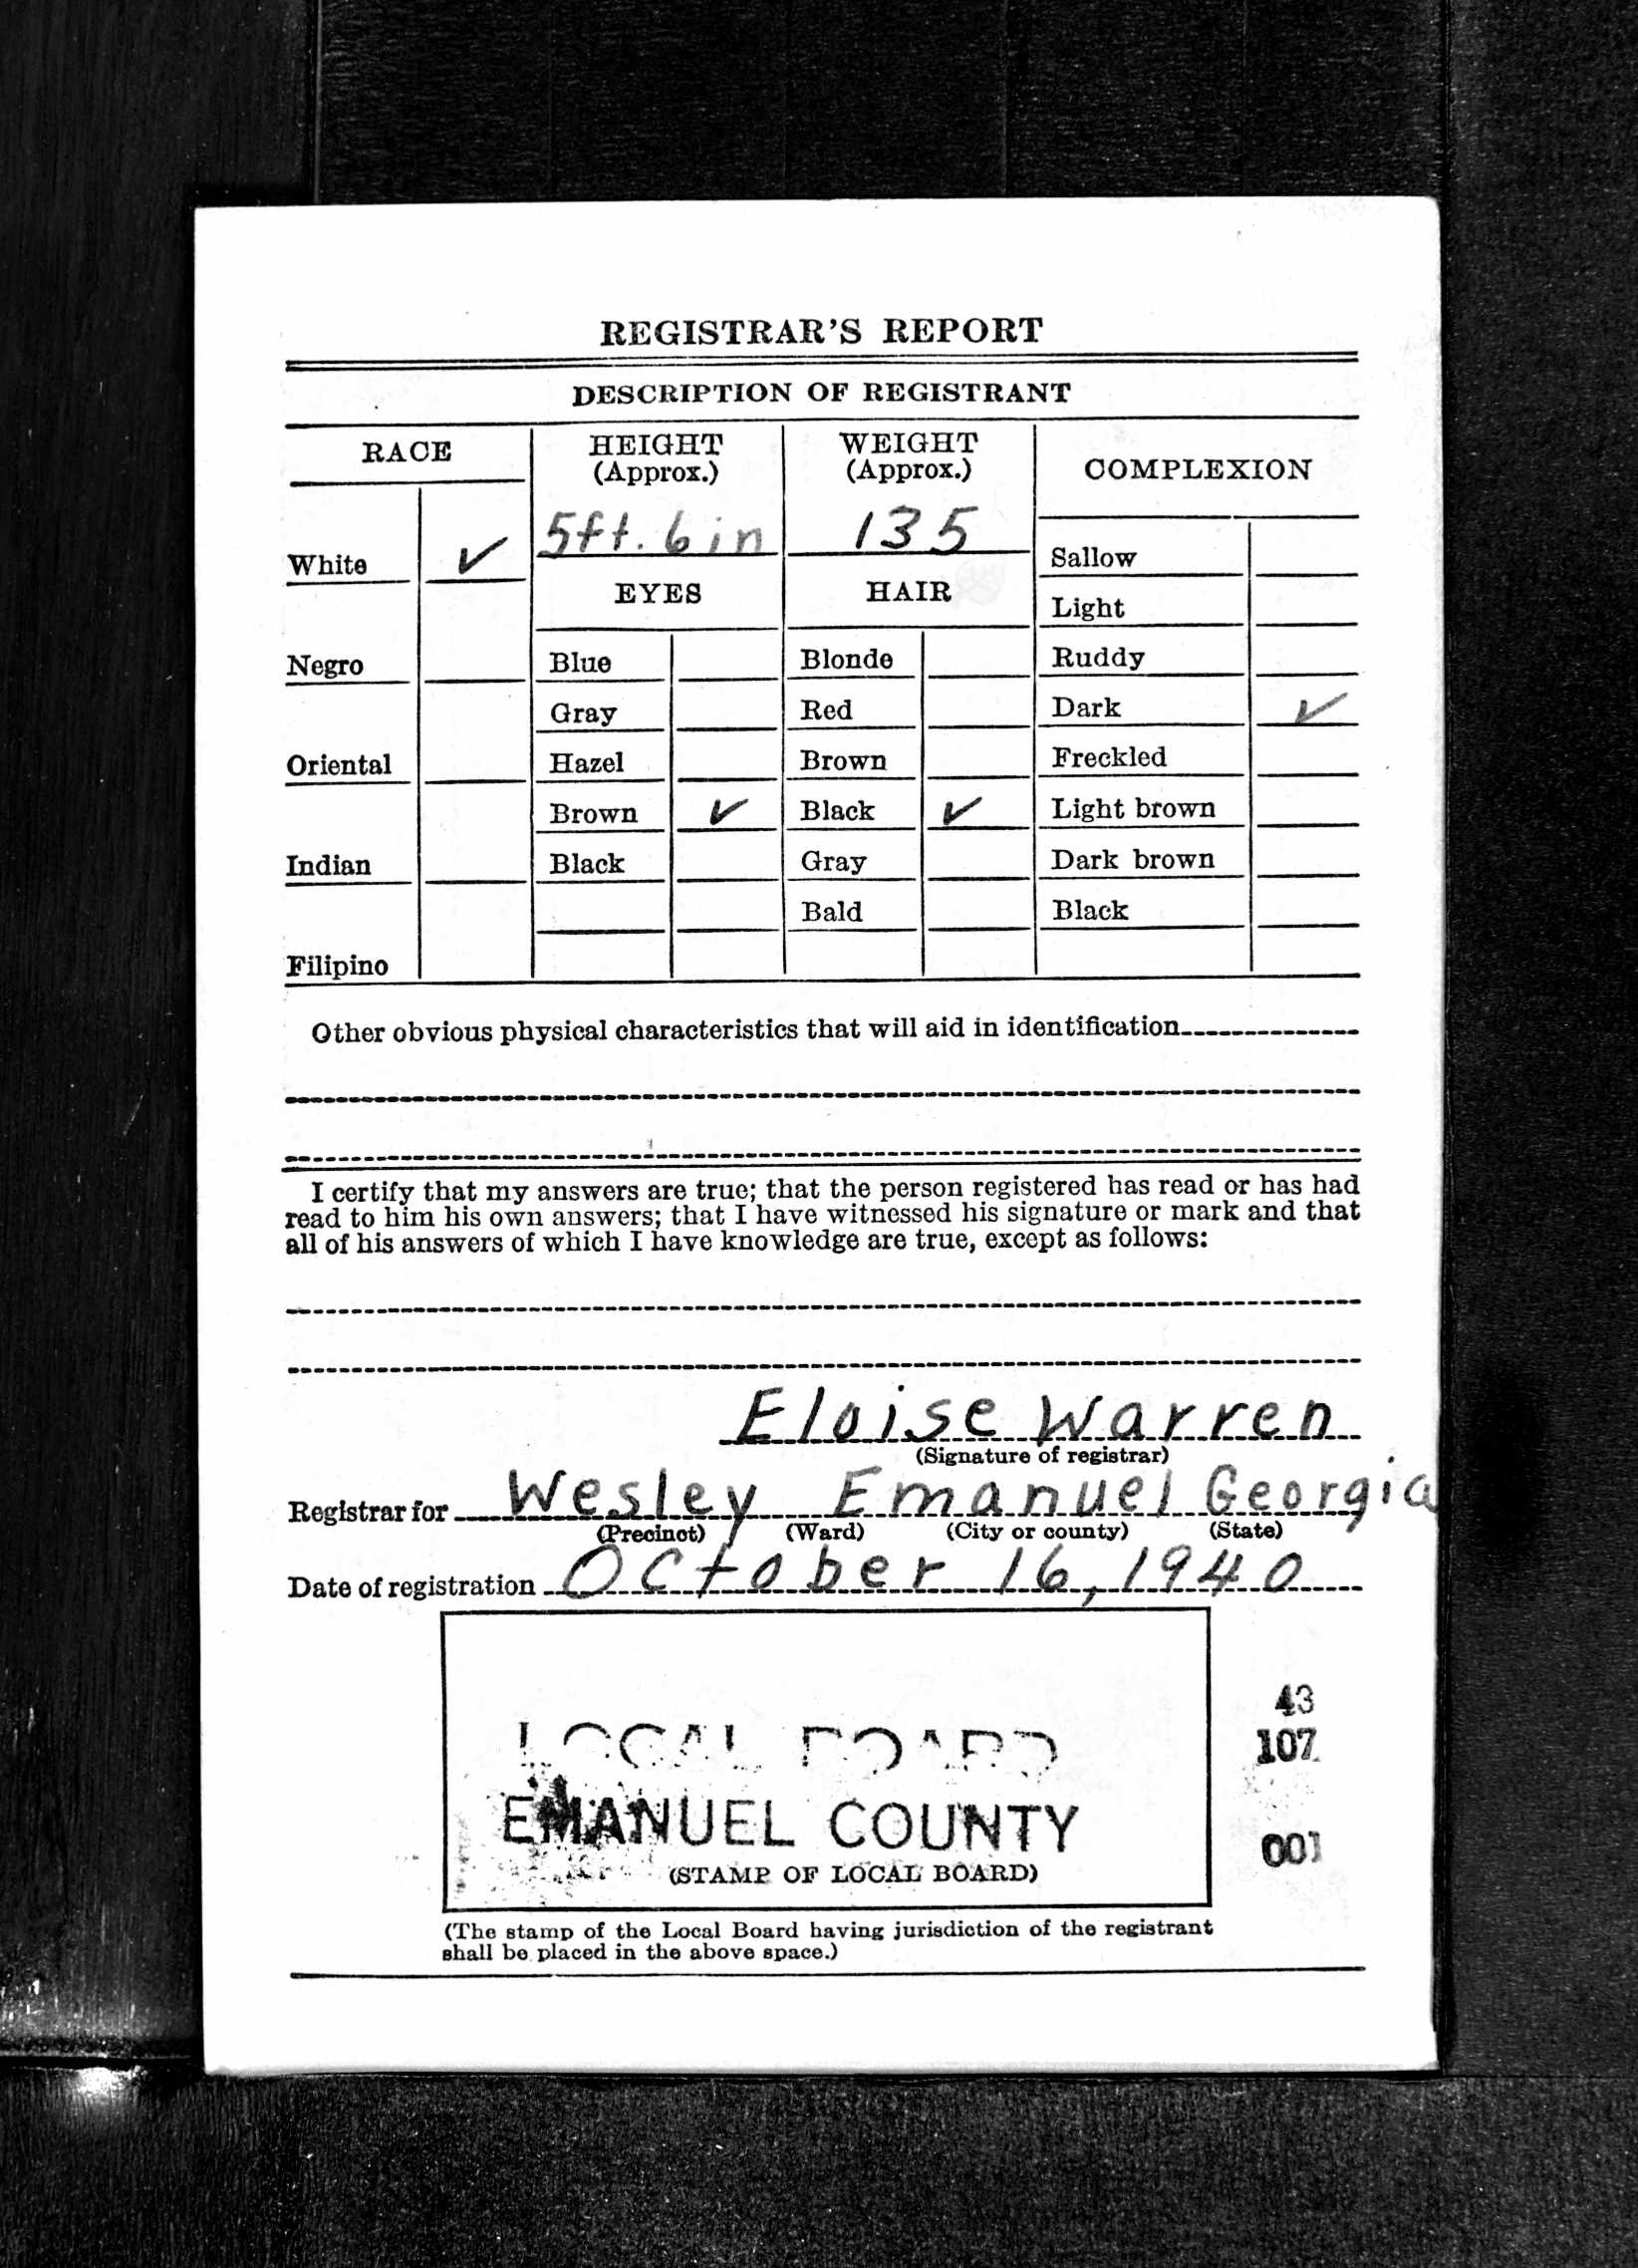 REGISTRAR'S REPORT
DESCRIPTION OF REGISTRANT
RACE
HEIGHT
(Approx.)
WEIGHT
(Approx.)
COMPLEXION
White ✓
5ft. 6 in
135
Sallow
EYES
HAIR
Light
Negro
Blue
Blonde
Ruddy
Gray
Red
Dark ✓
Oriental
Hazel
Brown
Freckled
Brown ✓
Black ✓
Light brown
Indian
Black
Gray
Dark brown
Bald
Black
Filipino
Other obvious physical characteristics that will aid in identification
I certify that my answers are true; that the person registered has read or has had
read to him his own answers; that I have witnessed his signature or mark and that
all of his answers of which I have knowledge are true, except as follows:
Eloise Warren
(Signature of registrar)
Registrar for Wesley Emanuel Georgia
(Precinct) (Ward) (City or county) (State)
Date of registration October 16, 1940
43
LOCAL BOARD
107
EMANUEL COUNTY
001
(STAMP OF LOCAL BOARD)
(The stamp of the Local Board having jurisdiction of the registrant
shall be placed in the above space.)